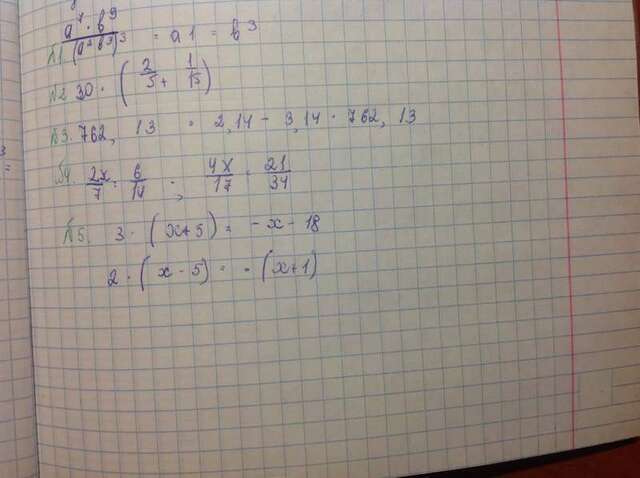 №1 a⁷ · b⁹ / (a² b³)³ = a1 = b³
№2 30 · ( 2/5 + 1/15 )
№3. 762, 13 · 2,14 - 3,14 · 762, 13
№4. 2x/7 : 6/14 ; 4x/17 : 21/34
№5. 3 · ( x+5) = - x - 18
2 · ( x - 5) = - (x+1)